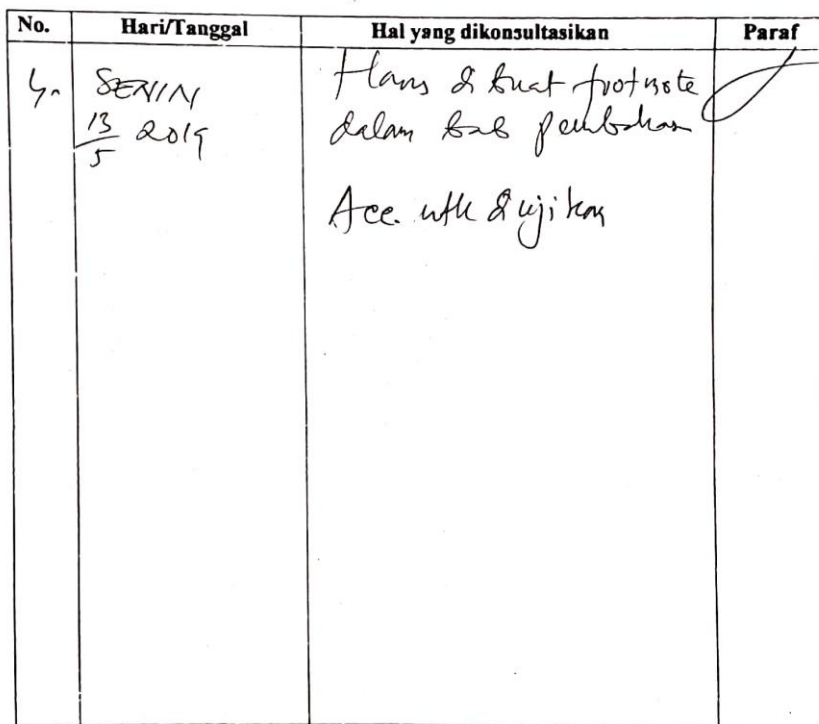 No. Hari/Tanggal Hal yang dikonsultasikan Paraf
4. SENIN Harus di buat footnote
13/5 2019 dalam bab pembahasan
Acc. utk diujikan